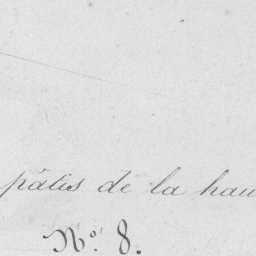 pâtis de la hau
N.º 8.